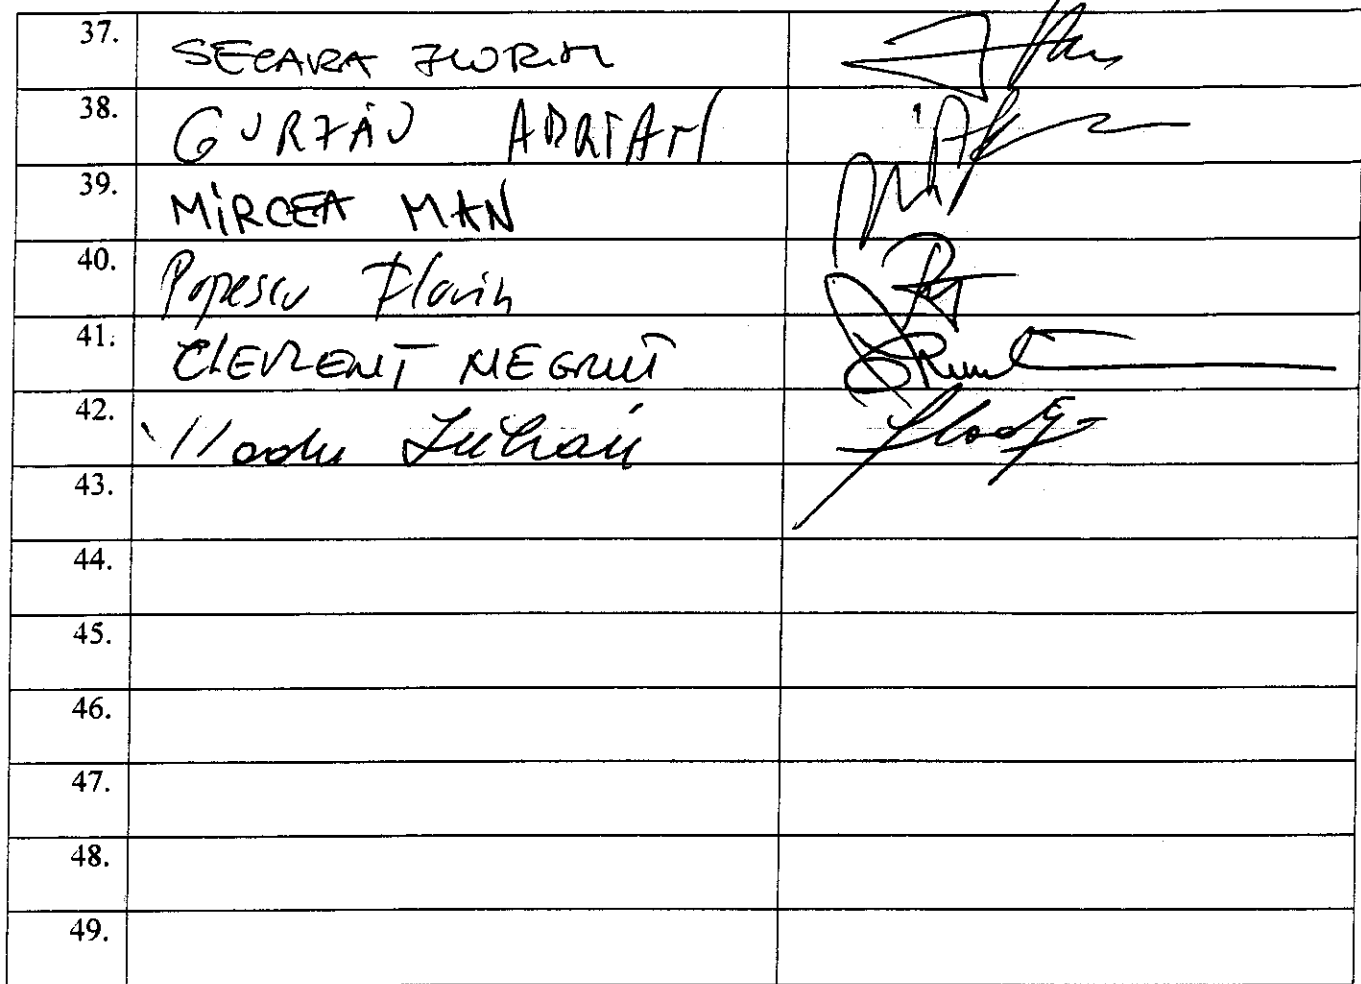 37. SECARA FLORIN
38. GURZĂU ADRIAN
39. MIRCEA MAN
40. Popescu Florin
41. CLEMENT NEGRUT
42. Vladu Iulian
43.
44.
45.
46.
47.
48.
49.